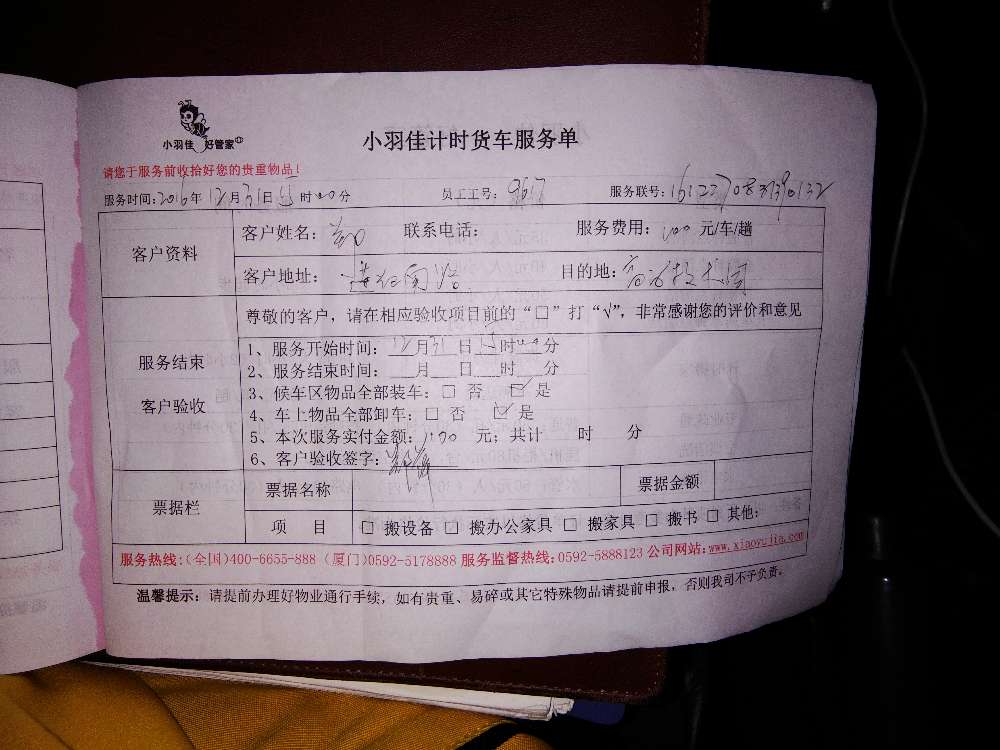 小羽佳 好管家
小羽佳计时货车服务单
请您于服务前收拾好您的贵重物品！
服务时间：2016年12月31日15时00分 员工工号：9617 服务联号：
客户资料 客户姓名： 联系电话： 服务费用：100元/车/趟
客户地址： 目的地：
尊敬的客户，请在相应验收项目前的“□”打“√”，非常感谢您的评价和意见
服务结束
客户验收
1、服务开始时间：12月31日15时00分
2、服务结束时间： 月 日 时 分
3、候车区物品全部装车：□ 否 ☑ 是
4、车上物品全部卸车：□ 否 ☑ 是
5、本次服务实付金额：100 元；共计 时 分
6、客户验收签字：
票据栏 票据名称 票据金额
项 目 □ 搬设备 □ 搬办公家具 □ 搬家具 □ 搬书 □ 其他：
服务热线：(全国)400-6655-888 (厦门)0592-5178888 服务监督热线：0592-5888123 公司网站：www.xiaoyujia.com
温馨提示：请提前办理好物业通行手续，如有贵重、易碎或其它特殊物品请提前申报，否则我司不予负责。